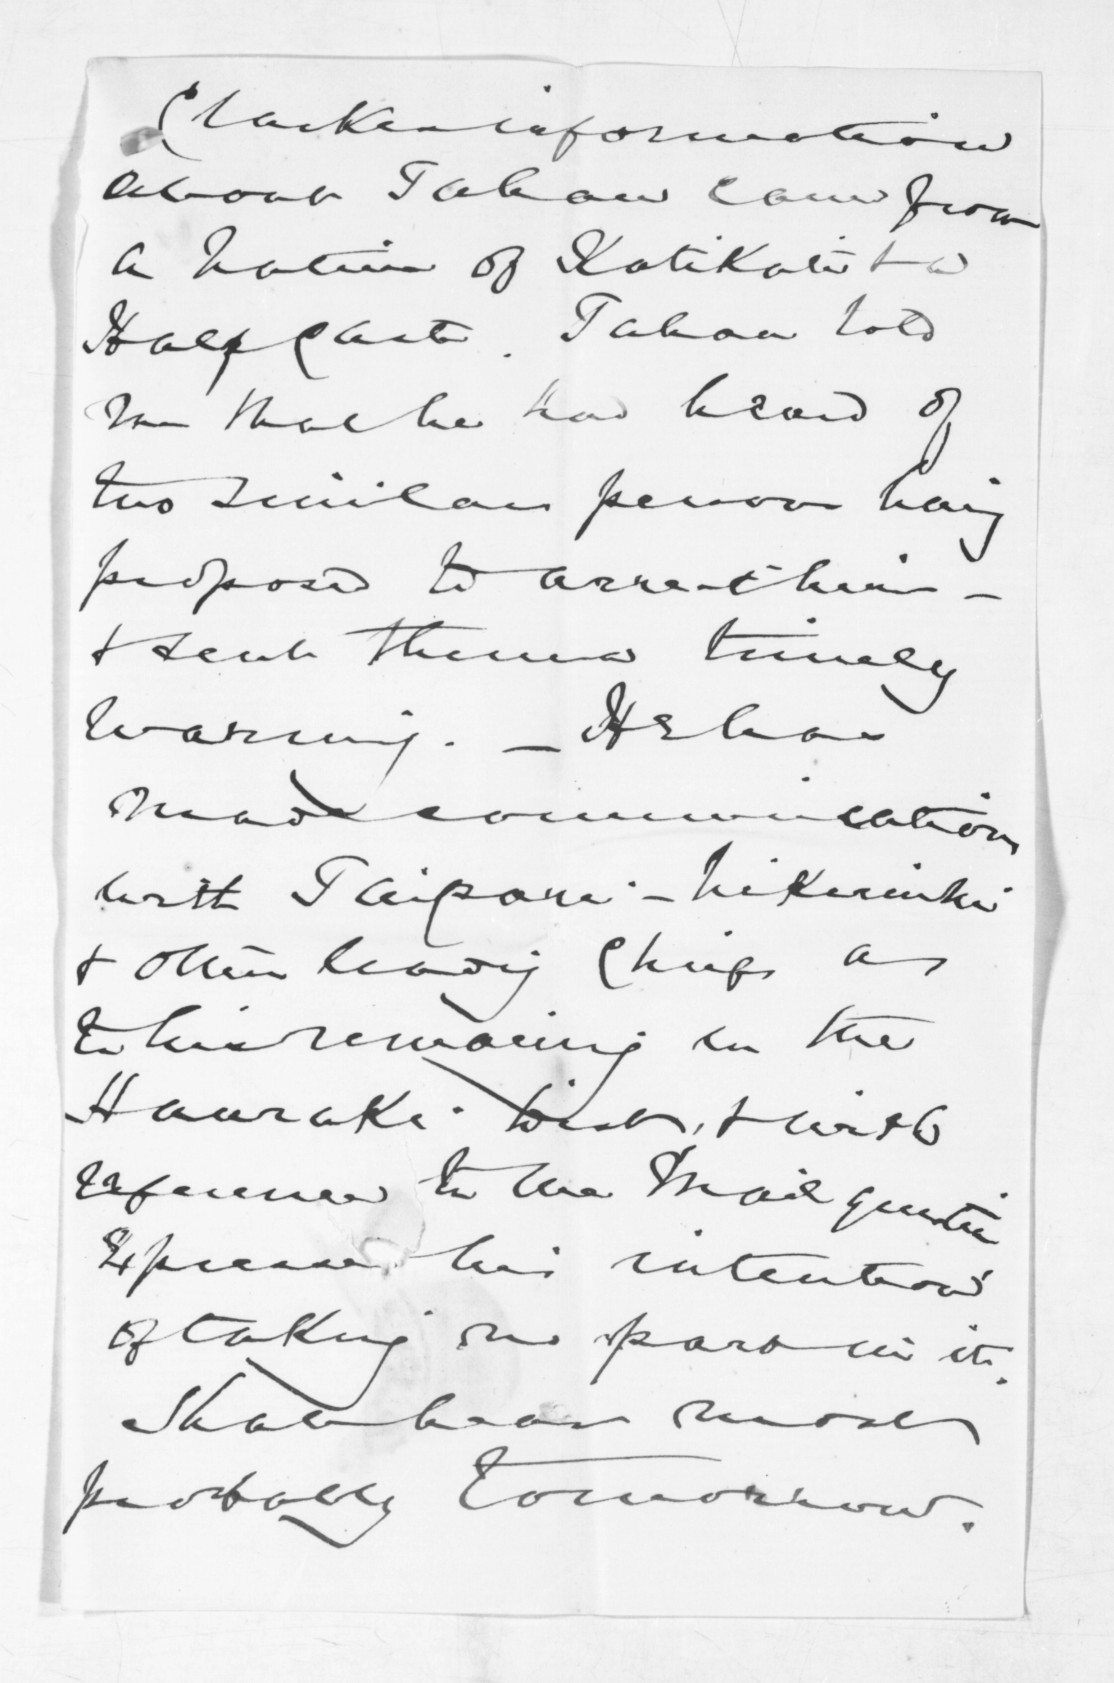 Clarke's information
about Tahau came from
a native of Katikati & a
Half Caste. Tahau told
me that he had heard of
two similar persons having
proposed to arrest him -
& sent them a timely
warning. - He has
made communications
with Taipari -
& other leading Chiefs as
to his remaining in the
Hauraki Dist, & with
reference to the Road question
Expresses his intention
of taking no part in it.
Shall hear more
probably tomorrow.